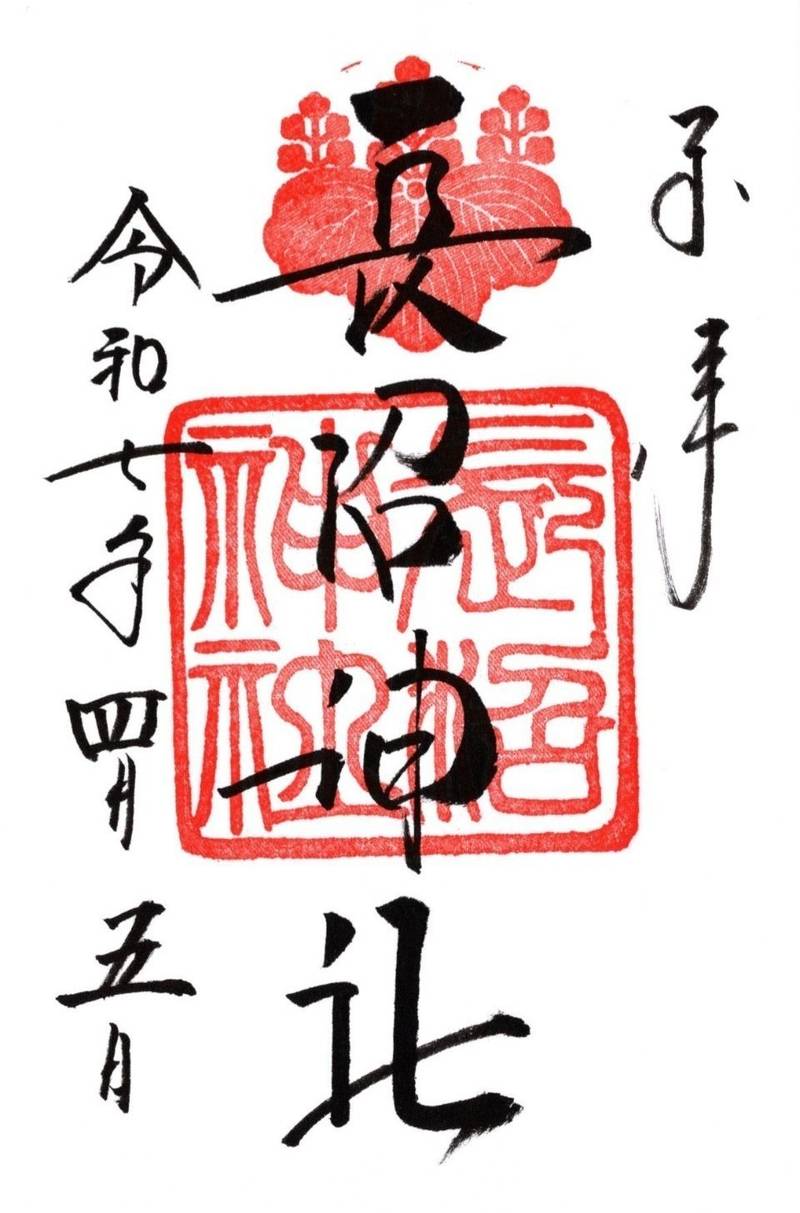 奉拝
長沼神社
長沼神社
令和七年四月五日